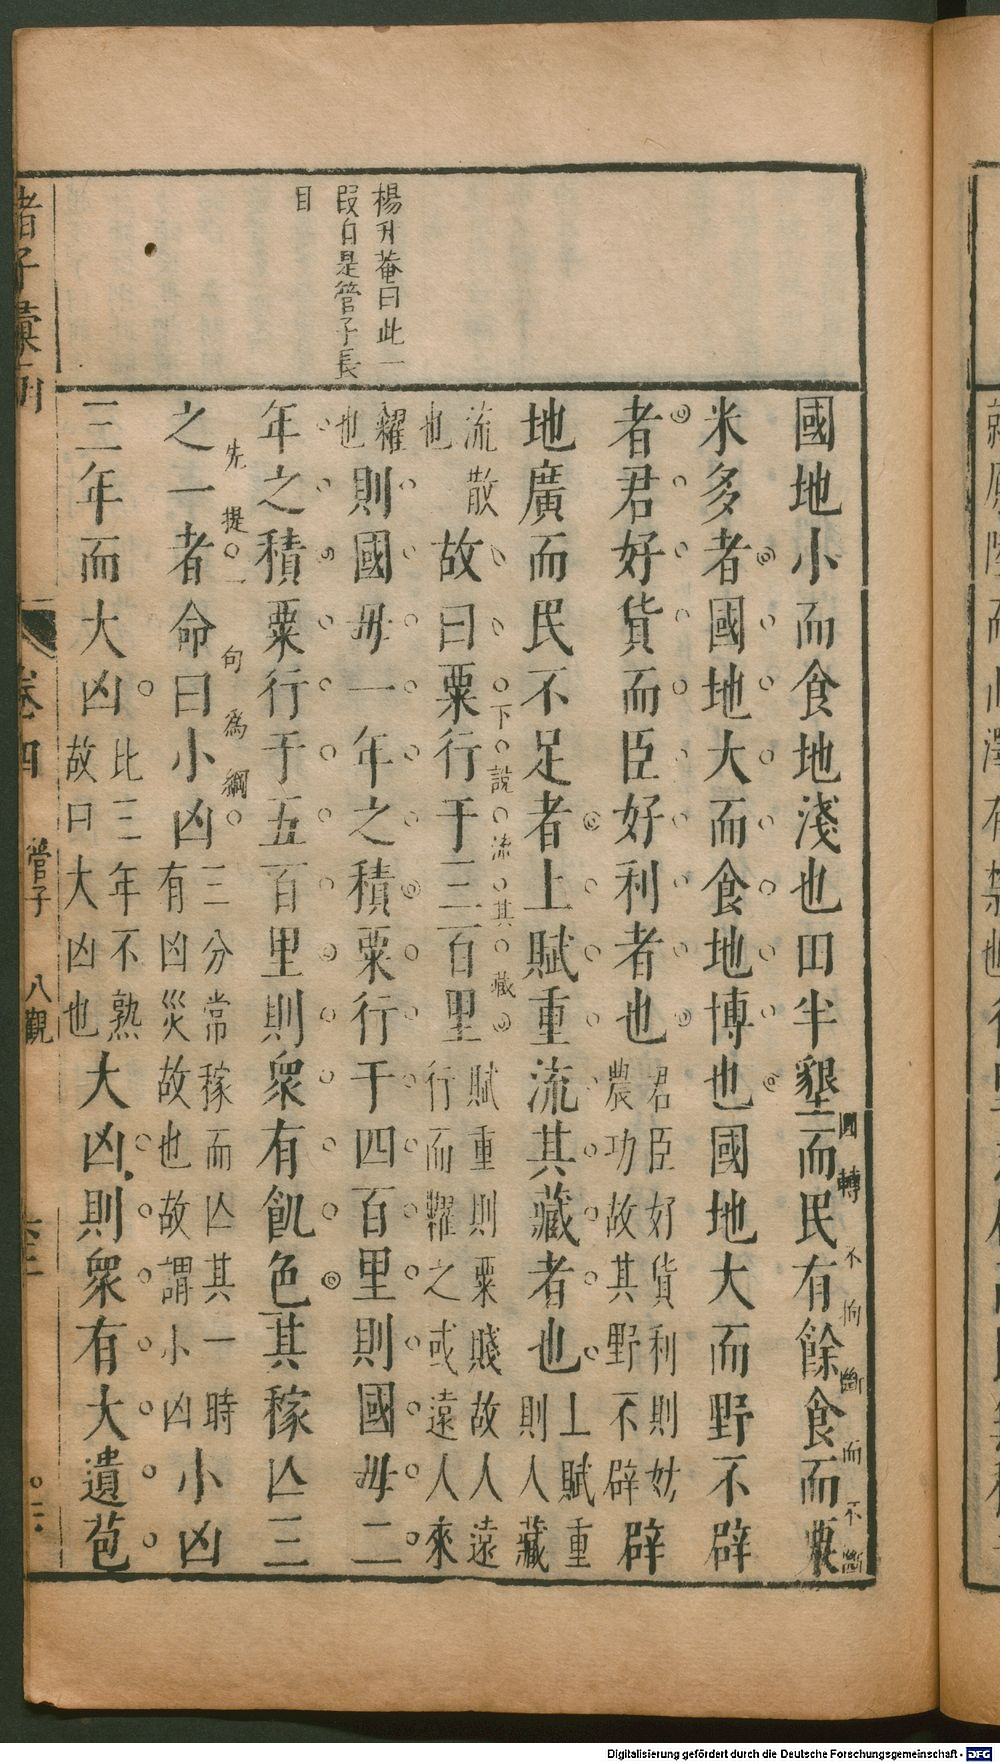 楊升菴曰此一
叚自是管子長
目
國地小而食地淺也田半墾而民有餘食而粟
圓轉不拘斷而不斷
米多者國地大而食地博也國地大而野不辟
者君好貨而臣好利者也君臣好貨利則妨農功故其野不辟辟
地廣而民不足者上賦重流其藏者也上賦重則人藏
流散也故曰粟行于三百里賦重則粟賤故人遠行而糶之或遠人來
下說流其藏
糴也則國毋一年之積粟行于四百里則國毋二
年之積粟行于五百里則衆有飢色其稼亾三
先提一句為綱
之一者命曰小凶三分常稼而亾其一時有凶災故也故謂小凶小凶
三年而大凶比三年不熟故曰大凶也大凶則衆有大遺苞
諸子彙函
卷四
管子
八觀
Digitalisierung gefördert durch die Deutsche Forschungsgemeinschaft - DFG